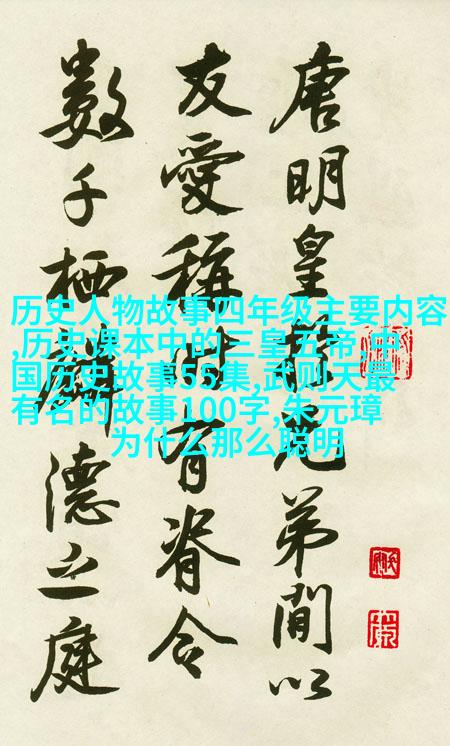 唐明皇兄弟間以
友愛稱時有脊令
數千栖麟德之庭
历史人物故事四年级主要内容
,历史课本中的三皇五帝,中
国历史故事55集,武则天最
有名的故事100字,朱元璋
为什么那么聪明